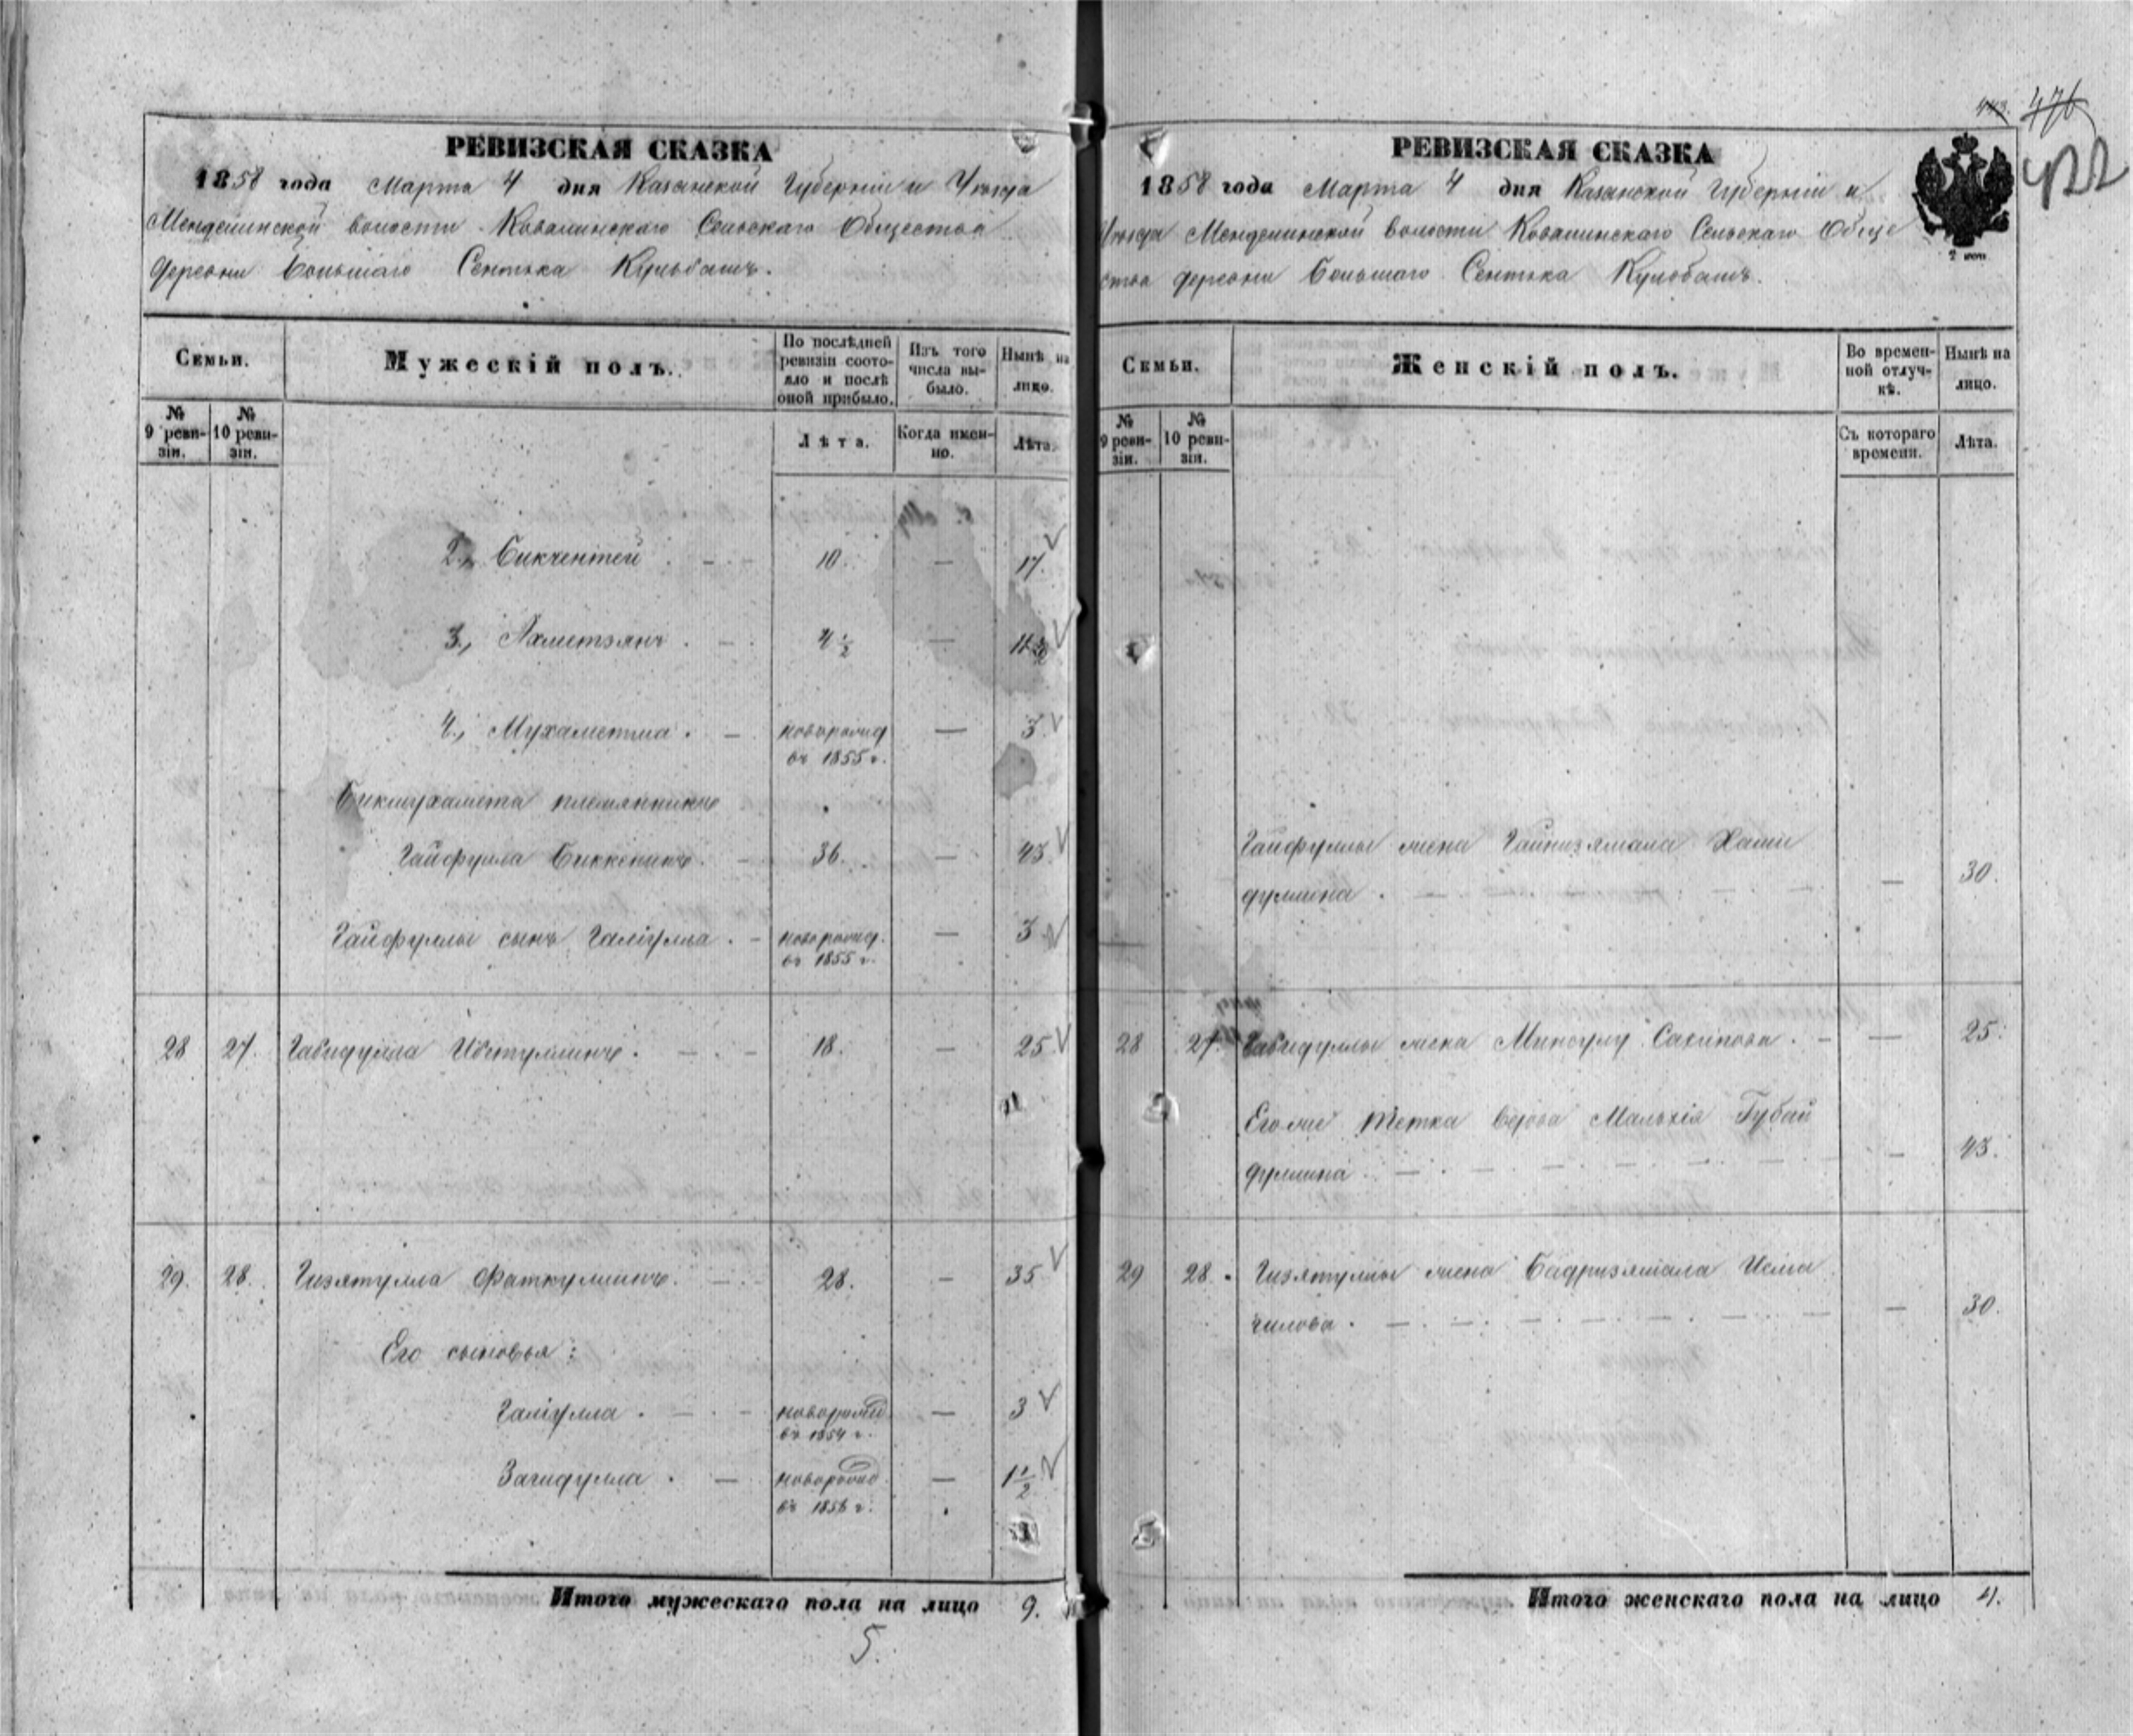 РЕВИЗСКАЯ СКАЗКА
1858 года Марта 4 дня Казанской Губерніи и Уѣзда
Менделинской волости Ковалинскаго Сельскаго Общества
деревни Большаго Сентяка Кульбашъ.
Семьи.
Мужескій полъ.
По послѣдней ревизіи состояло и послѣ оной прибыло.
Изъ того числа выбыло.
Нынѣ на лицо.
№ 9 ревизіи.
№ 10 ревизіи.
Лѣта.
Когда именно.
Лѣта.
2., Бикчентей 10. — 17.
3., Ахметзянъ 4 1/2 —
4., Мухаметша новорожд — 3
въ 1855 г.
Бикмухамета племянникъ
Гайфулла Биккенинъ 36. — 43.
Гайфуллы сынъ Галіулла новорожд. — 3
въ 1855 г.
28 27. Габидулла 18. — 25
29. 28. Гизятулла Фаткуллинъ 28. — 35
Его сыновья:
Галіулла новорожд — 3
въ 1854 г.
Загидулла новорожд — 1 1/2
въ 1856 г.
Итого мужескаго пола на лицо 9.
5.
443. 476
422
РЕВИЗСКАЯ СКАЗКА
1858 года Марта 4 дня Казанской Губерніи и
Уѣзда Менделинской волости Ковалинскаго Сельскаго Обще
ства деревни Большаго Сентяка Кульбашъ.
Семьи.
Женскій полъ.
Во временной отлучкѣ.
Нынѣ на лицо.
№ 9 ревизіи.
№ 10 ревизіи.
Съ котораго времени.
Лѣта.
Гайфуллы жена Гайнизямала Хами
дуллина — 30.
28 27. Габидуллы жена — 25.
Его же тетка вдова Губай
дуллина — 43.
29 28. Гизятуллы жена Бадризямала Исма
гилова — 30.
Итого женскаго пола на лицо 4.